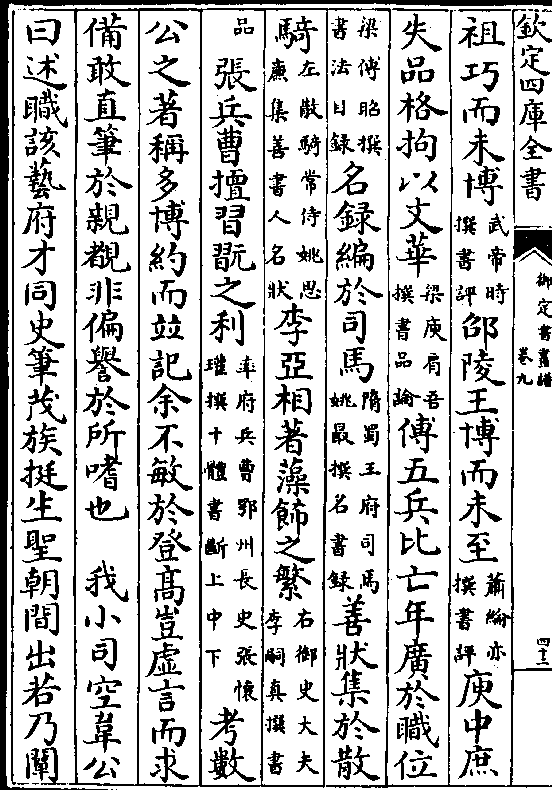 欽定四庫全書
御定書畫譜
卷九
四十三
祖巧而未博武帝時撰書評邵陵王博而未至蕭綸亦撰書評庾中庶
失品格拘以文華梁庾肩吾撰書品論傅五兵比亡年廣於職位
梁傅昭撰書法目録名録編於司馬隋蜀王府司馬姚最撰名書録善狀集於散
騎左散騎常侍姚思廉集善書人名狀李亞相著藻飾之繁右御史大夫李嗣真撰書
品 張兵曹擅習翫之利率府兵曹鄂州長史張懷瓘撰十體書斷上中下考數
公之著稱多博約而竝記余不敏於登髙豈虚言而求
備敢直筆於親覩非偏譽於所嗜也 我小司空韋公
曰述職該藝府才同史筆茂族挺生聖朝間出若乃闡